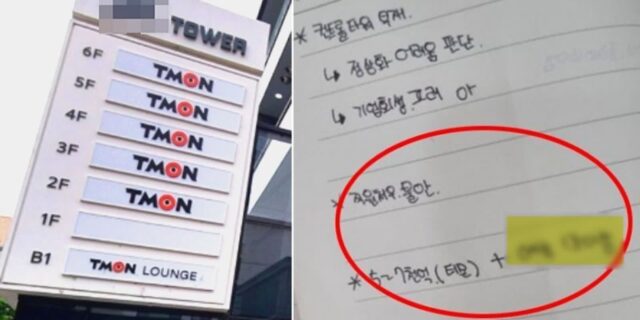 TOWER
6F TMON
5F TMON
4F TMON
3F TMON
2F TMON
1F
B1 TMON LOUNGE
* 컨트롤타워 부재.
↳ 정상화 어려움 판단.
↳ 기업회생 고려
* 직원처우 불안.
* 5~7천억.(티몬) +